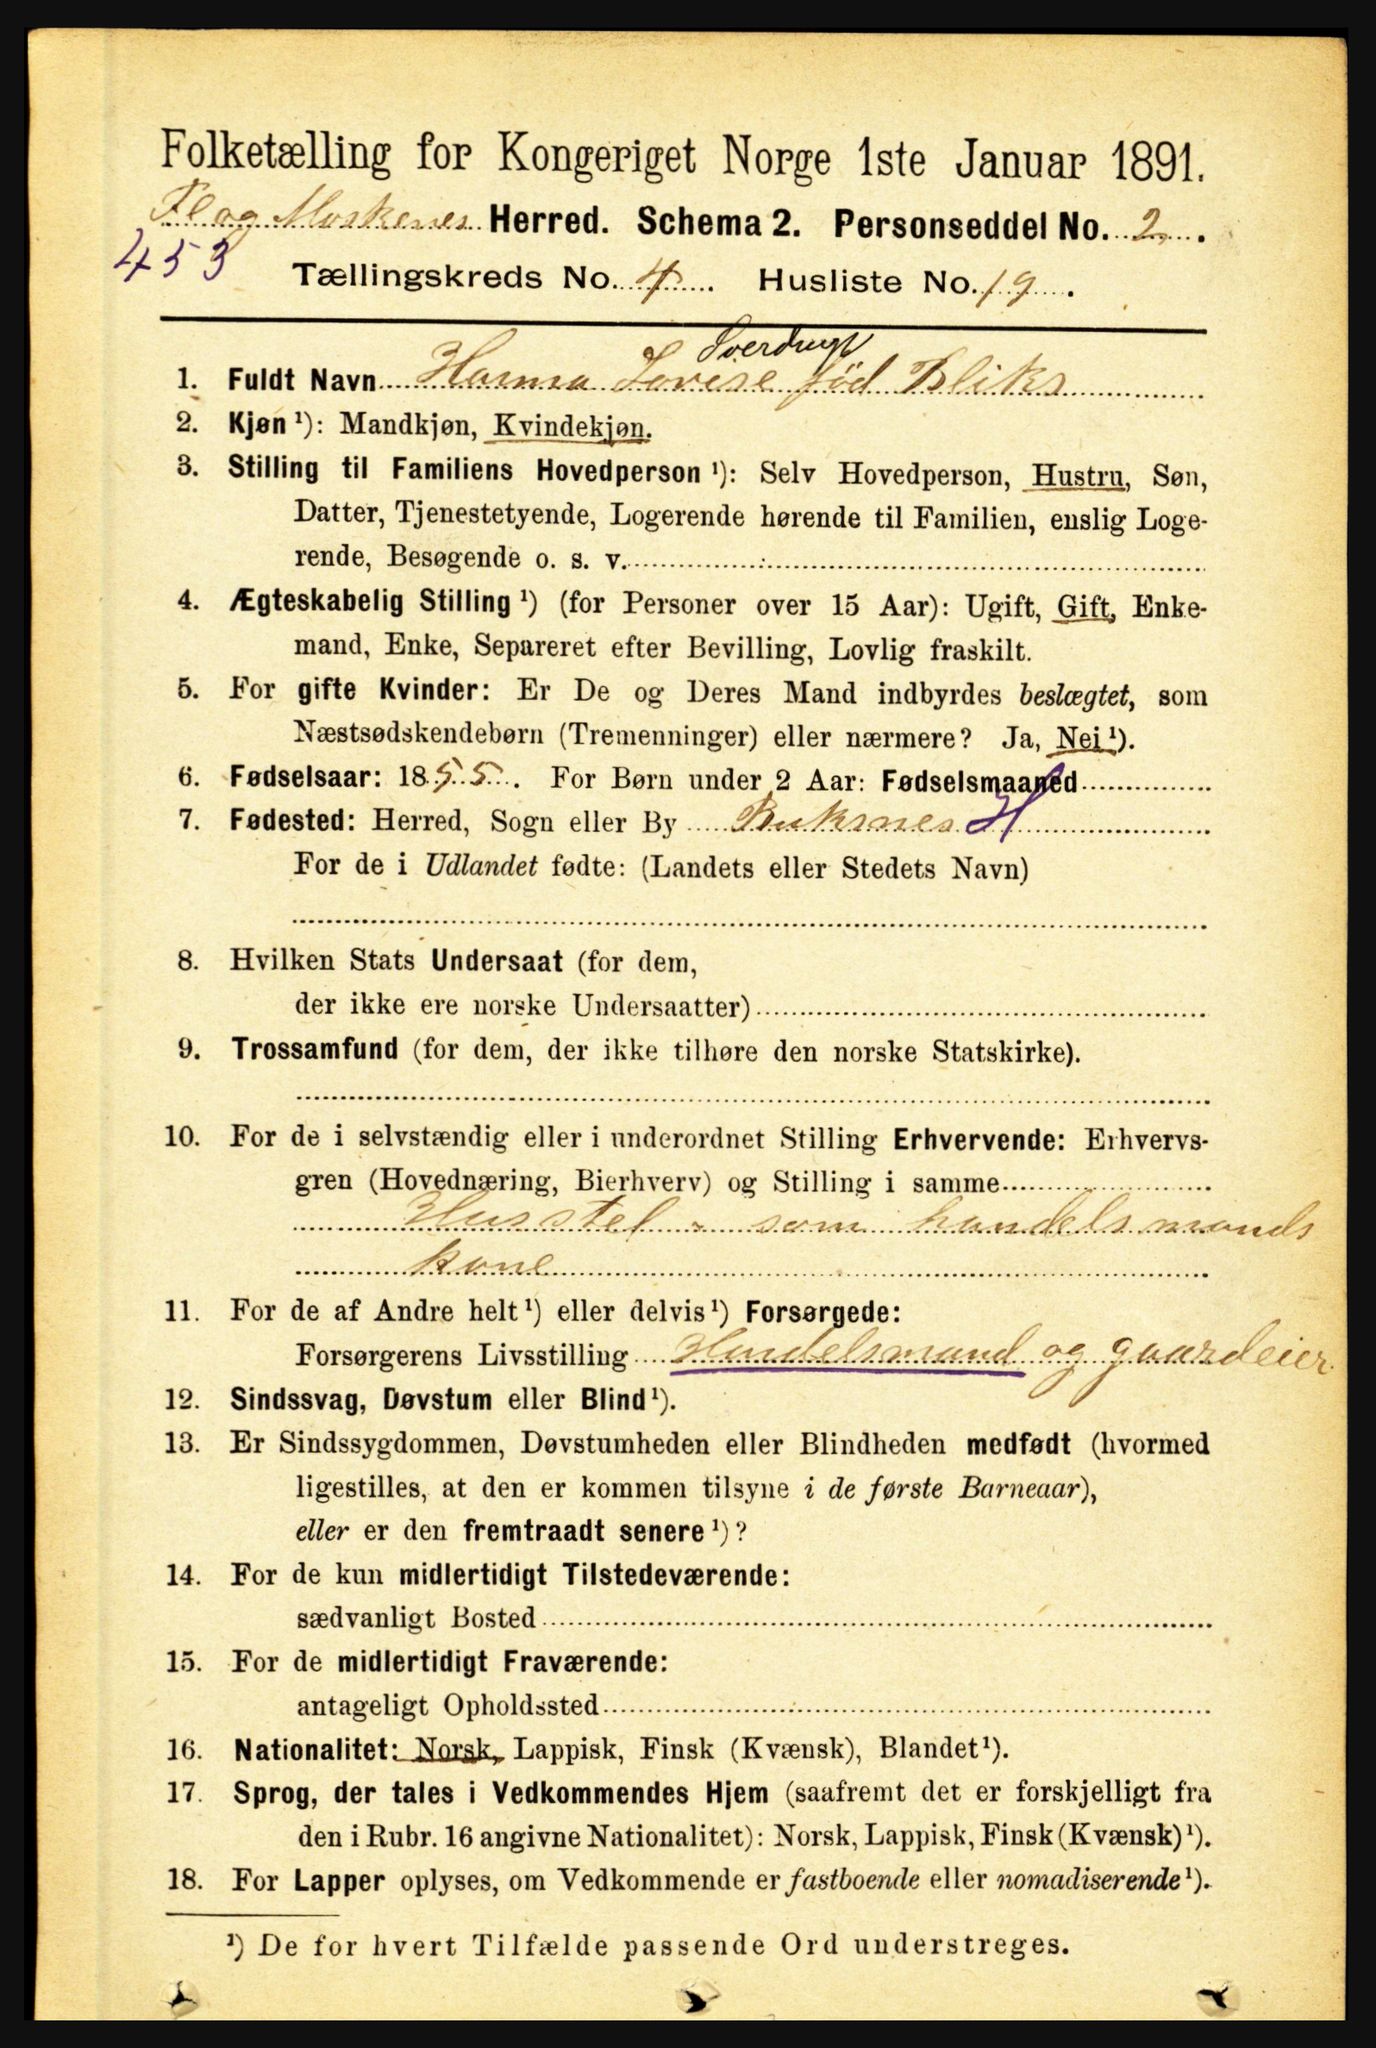 Folketælling for Kongeriget Norge 1ste Januar 1891.
Fl og Moskenes Herred. Schema 2. Personseddel No. 2.
453
Tællingskreds No. 4. Husliste No. 19.
Sverdrup
1. Fuldt Navn Hanna Lovise fød Bliks
2. Kjøn ¹): Mandkjøn, Kvindekjøn.
3. Stilling til Familiens Hovedperson ¹): Selv Hovedperson, Hustru, Søn,
Datter, Tjenestetyende, Logerende hørende til Familien, enslig Loge-
rende, Besøgende o. s. v.
4. Ægteskabelig Stilling ¹) (for Personer over 15 Aar): Ugift, Gift, Enke-
mand, Enke, Separeret efter Bevilling, Lovlig fraskilt.
5. For gifte Kvinder: Er De og Deres Mand indbyrdes beslægtet, som
Næstsødskendebørn (Tremenninger) eller nærmere? Ja, Nei ¹).
6. Fødselsaar: 1855. For Børn under 2 Aar: Fødselsmaaned
7. Fødested: Herred, Sogn eller By Buksnes H
For de i Udlandet fødte: (Landets eller Stedets Navn)
8. Hvilken Stats Undersaat (for dem,
der ikke ere norske Undersaatter)
9. Trossamfund (for dem, der ikke tilhøre den norske Statskirke).
10. For de i selvstændig eller i underordnet Stilling Erhvervende: Erhvervs-
gren (Hovednæring, Bierhverv) og Stilling i samme
Husstel - som handelsmands
kone
11. For de af Andre helt ¹) eller delvis ¹) Forsørgede:
Forsørgerens Livsstilling Handelsmand og gaardeier
12. Sindssvag, Døvstum eller Blind ¹).
13. Er Sindssygdommen, Døvstumheden eller Blindheden medfødt (hvormed
ligestilles, at den er kommen tilsyne i de første Barneaar),
eller er den fremtraadt senere ¹)?
14. For de kun midlertidigt Tilstedeværende:
sædvanligt Bosted
15. For de midlertidigt Fraværende:
antageligt Opholdssted
16. Nationalitet: Norsk, Lappisk, Finsk (Kvænsk), Blandet ¹).
17. Sprog, der tales i Vedkommendes Hjem (saafremt det er forskjelligt fra
den i Rubr. 16 angivne Nationalitet): Norsk, Lappisk, Finsk (Kvænsk) ¹).
18. For Lapper oplyses, om Vedkommende er fastboende eller nomadiserende ¹).
¹) De for hvert Tilfælde passende Ord understreges.